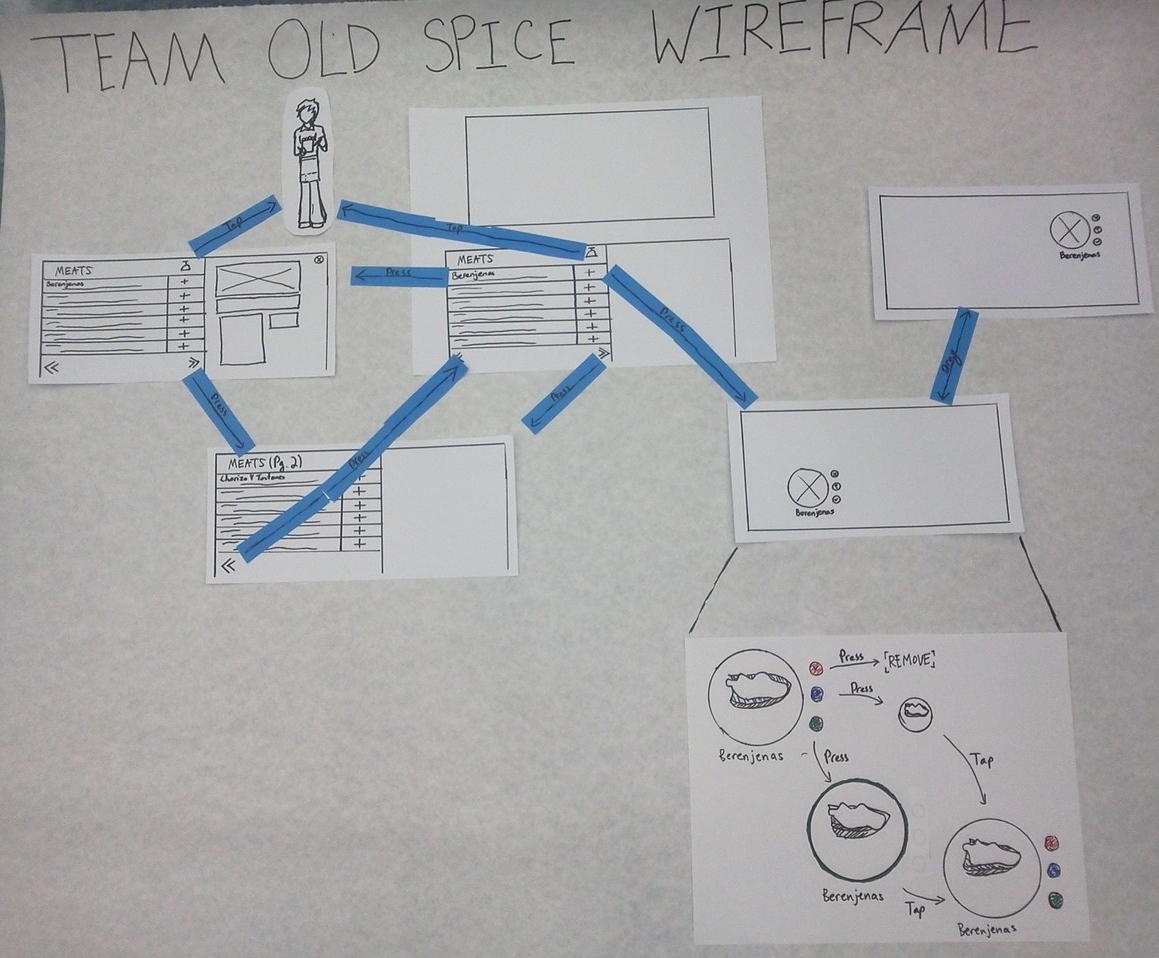 TEAM OLD SPICE WIREFRAME
Tap
Tap
MEATS
Berenjenas
Press
MEATS
Berenjenas
Press
Berenjenas
Press
Press
Press
MEATS (Pg. 2)
Chorizo Y Tostones
Berenjenas
Press
[REMOVE]
Press
Berenjenas
Press
Tap
Berenjenas
Tap
Berenjenas